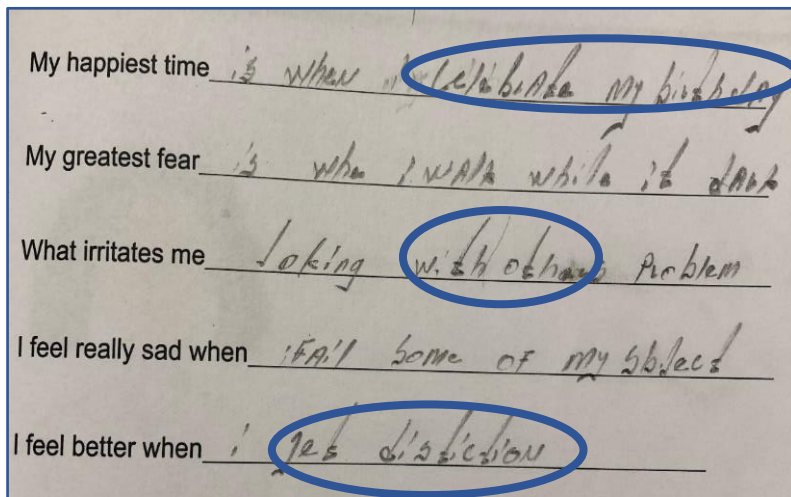 My happiest time is when celebrate my birthday
My greatest fear is whe I walk while it dark
What irritates me Joking with others problem
I feel really sad when i Fail some of my sbject
I feel better when i get distiction